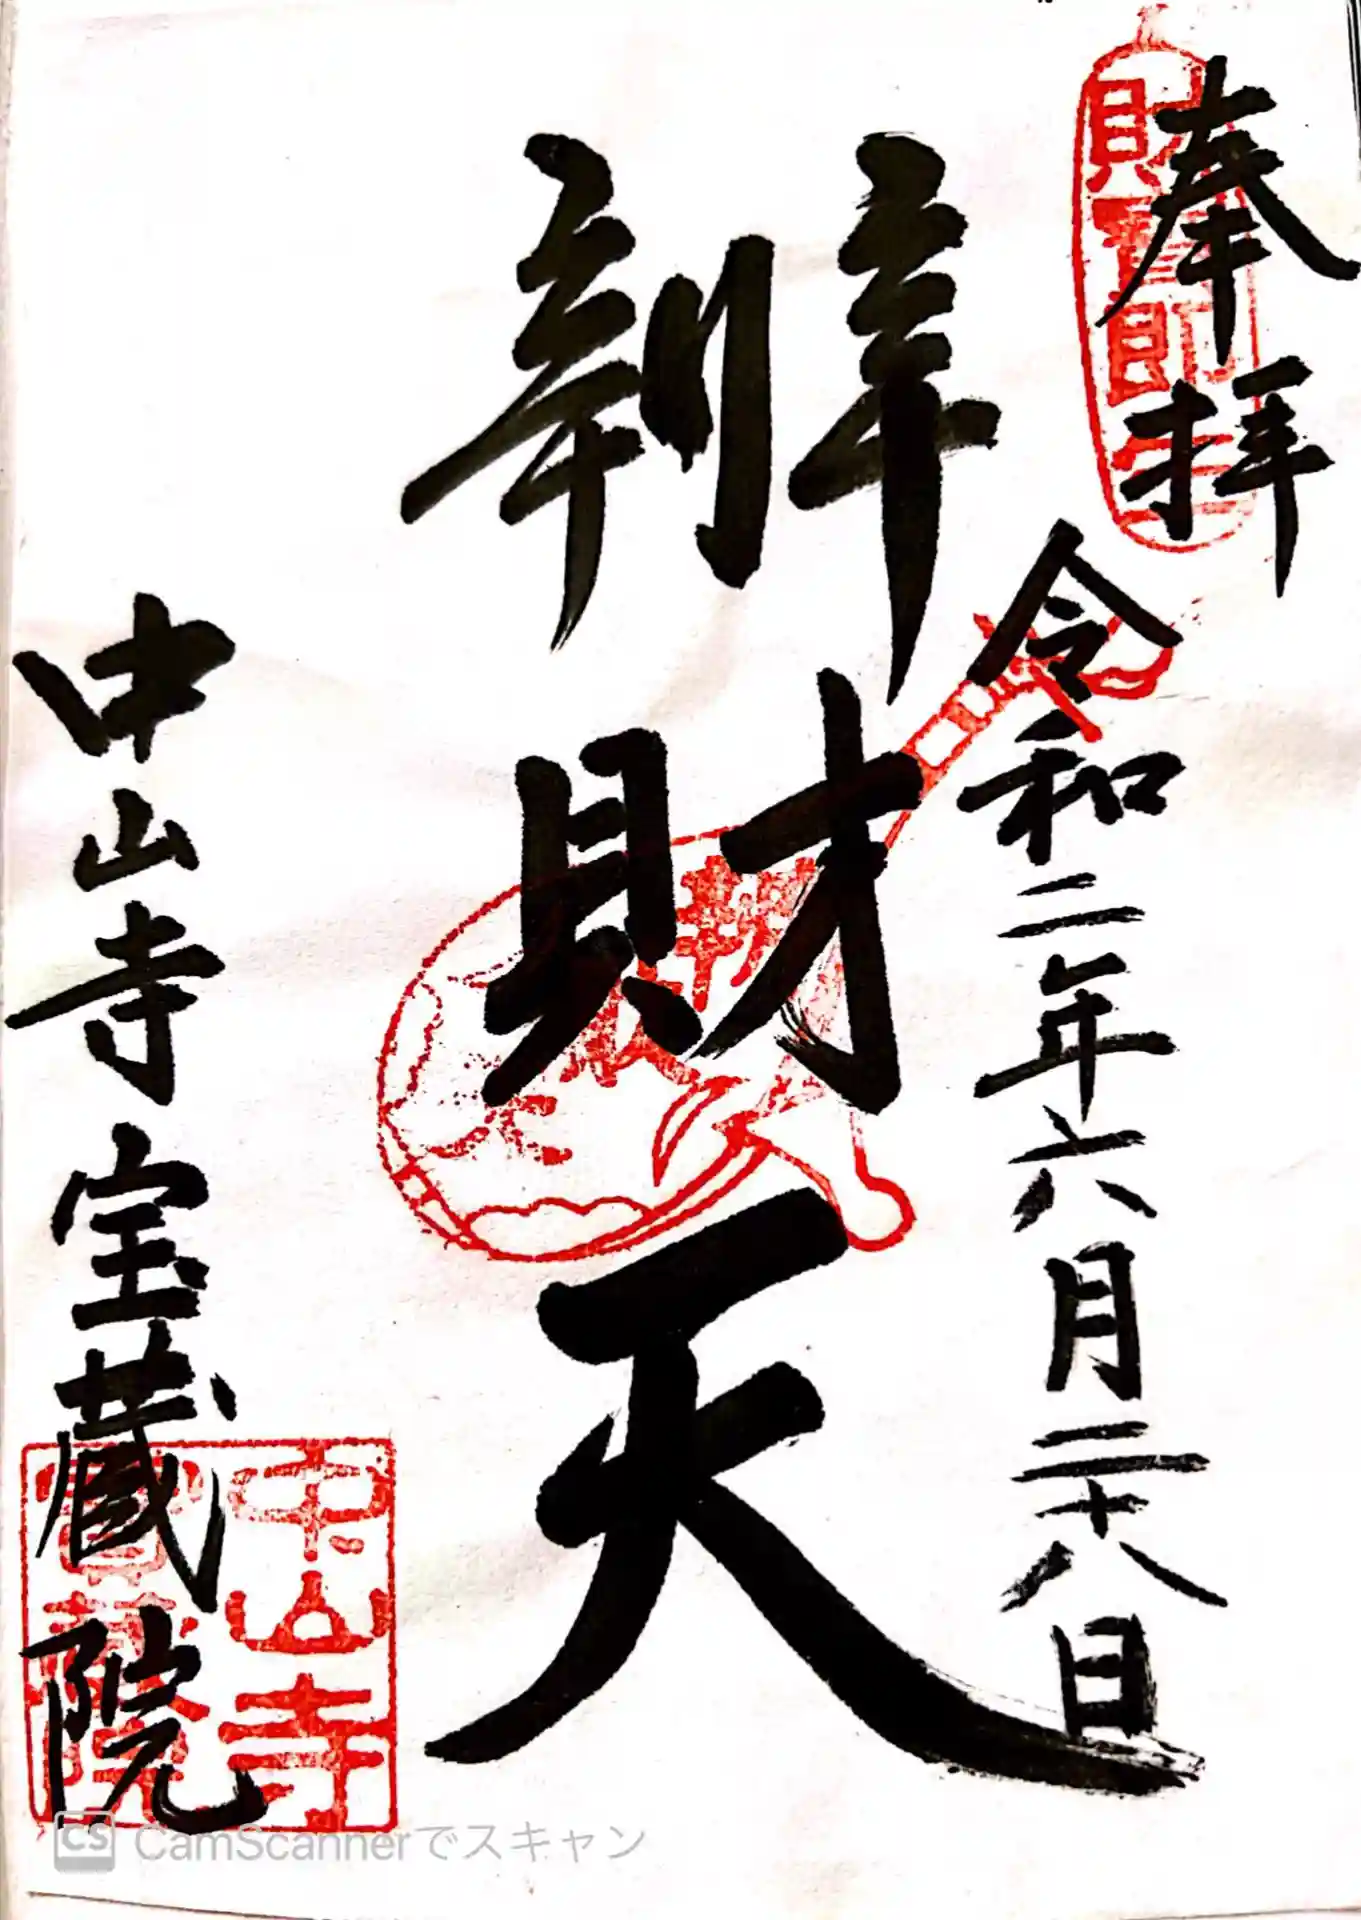 奉拝
令和二年六月二十八日
辨財天
中山寺宝蔵院
中山寺
CS CamScannerでスキャン